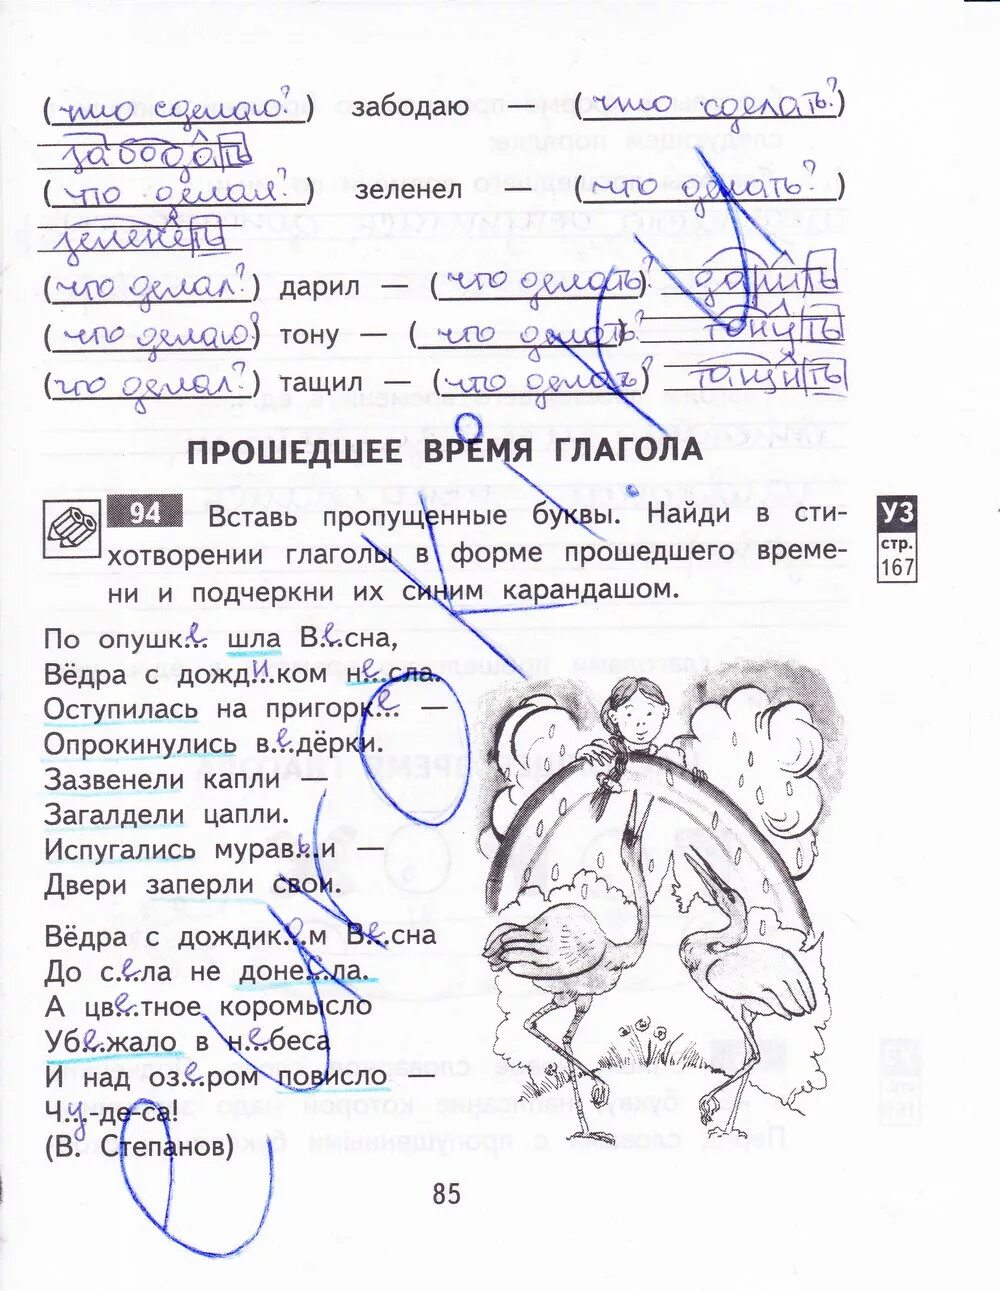 (что сделаю?) забодаю — (что сделать?)
забодать
(что делал?) зеленел (что делать?)
зеленеть
(что делал?) дарил — (что делать?) дарить
(что делаю?) тону — (что делать?) тонуть
(что делал?) тащил — (что делать?) тащить
ПРОШЕДШЕЕ ВРЕМЯ ГЛАГОЛА
94 Вставь пропущенные буквы. Найди в сти-
хотворении глаголы в форме прошедшего време-
ни и подчеркни их синим карандашом.
УЗ
стр.
167
По опушк..е.. шла В..е..сна,
Вёдра с дожд..и..ком н..е..сла.
Оступилась на пригорк..е.. —
Опрокинулись в..е..дёрки.
Зазвенели капли —
Загалдели цапли.
Испугались мурав..ь..и —
Двери заперли свои.
Вёдра с дождик..о..м В..е..сна
До с..е..ла не доне..с..ла.
А цв..е..тное коромысло
Уб..е..жало в н..е..беса
И над оз..е..ром повисло —
Ч..у..-де-са!
(В. Степанов)
85